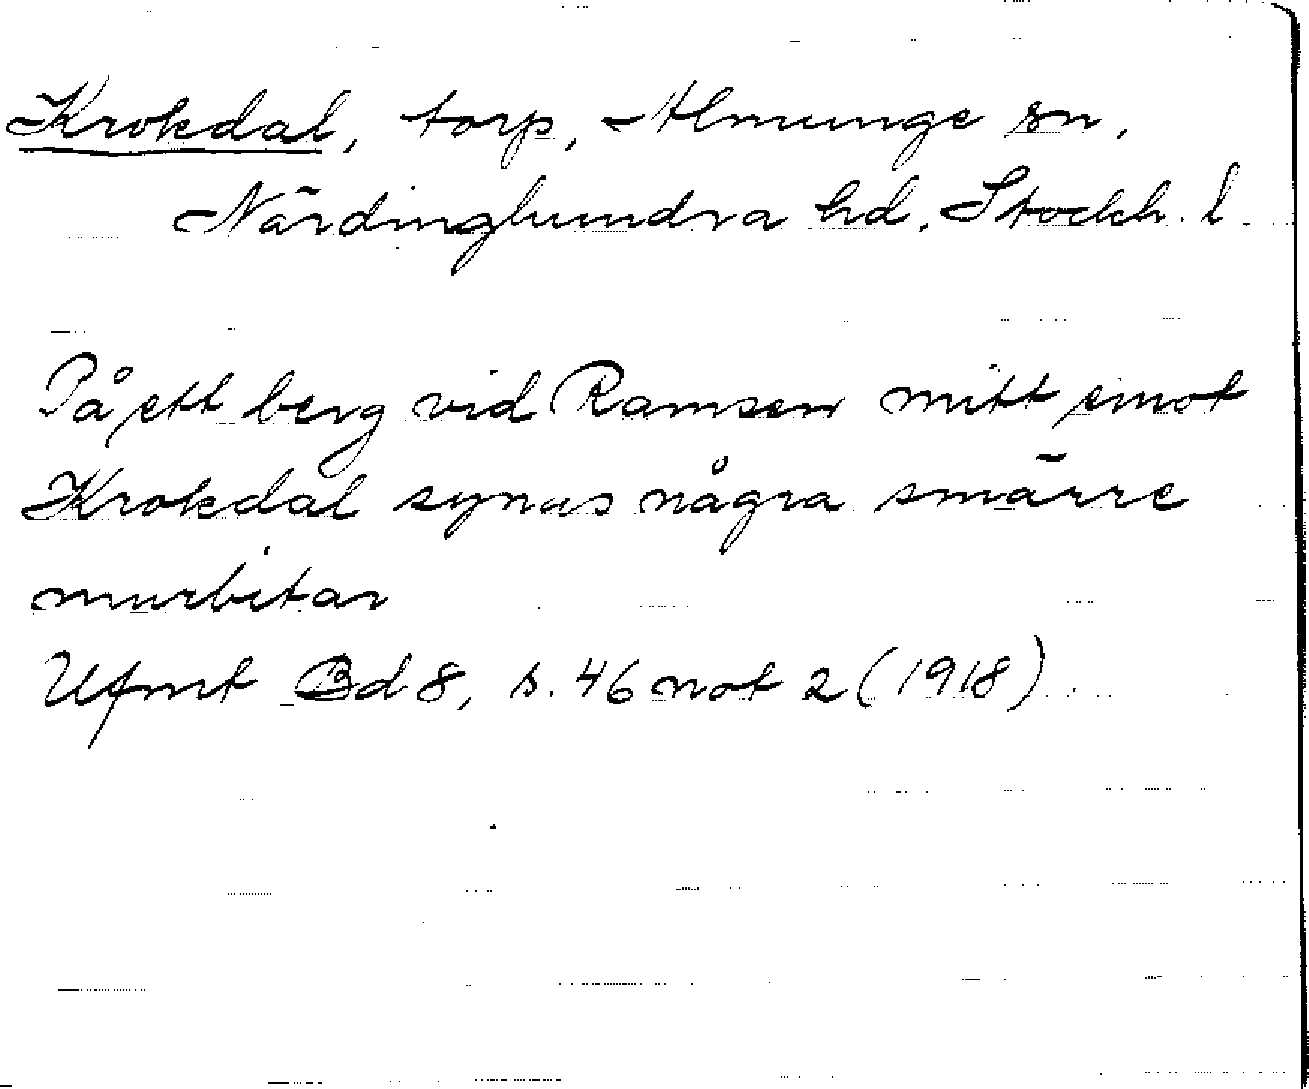 Krokdal, torp, Almunge sn,
Närdinghundra hd, Stockh. l
På ett berg vid Ramsen mitt emot
Krokdal synas några smärre
murbitar
Ufmt Bd 8, s. 46 not 2 (1918)